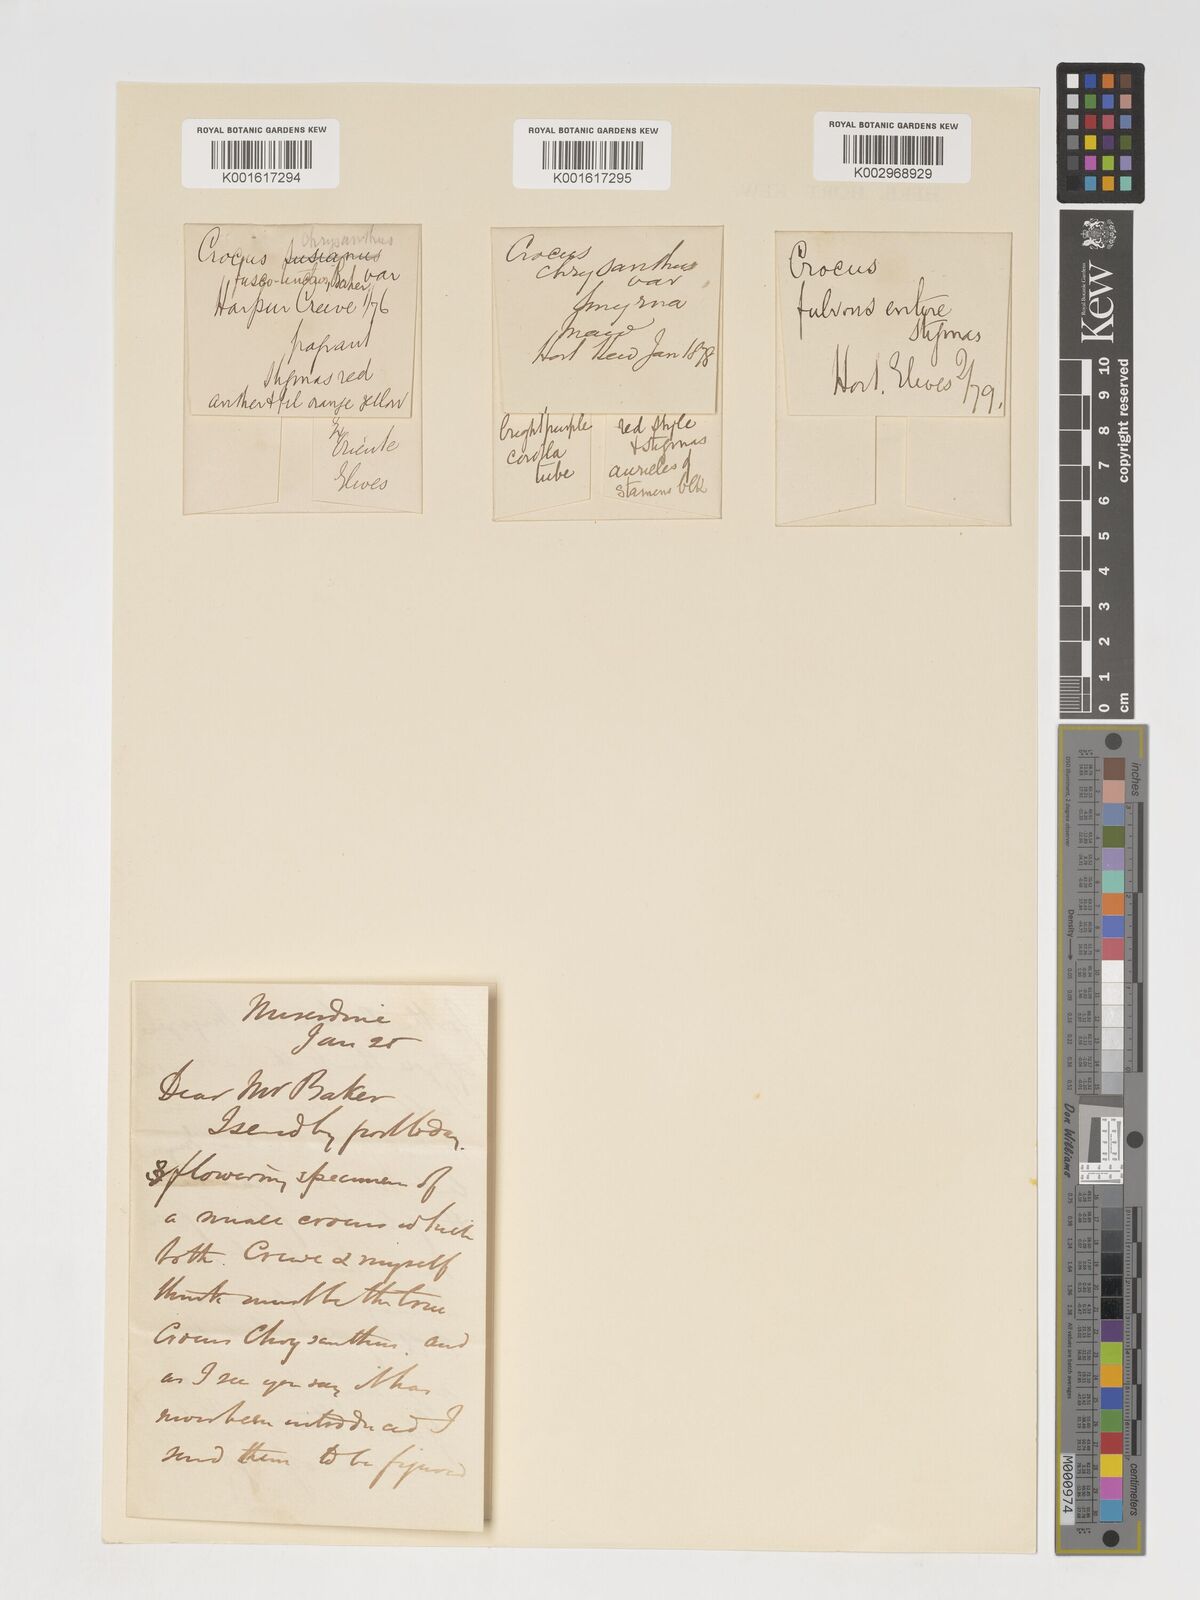 ROYAL BOTANIC GARDENS KEW
K001617294
ROYAL BOTANIC GARDENS KEW
K001617295
ROYAL BOTANIC GARDENS KEW
K002968929
chrysanthus
Crocus susianus
fusco-tinctus, Baker var
Harpur Crewe 1/76
fragrant
stigmas red
anther & fil orange yellow
Ex
Oriente
Elwes
Crocus
chrysanthus
var
Smyrna
Maw
Hort Kew Jan 1878
bright purple
corolla
tube
red style
& stigmas
auricles of
stamens blk
Crocus
fulvous entire
stigmas
Hort. Elwes 2/79.
Miserdine
Jan 25
Dear Mr Baker
I send by post today
3 flowering specimen of
a small crocus which
both Crewe & myself
think must be the true
Crocus Chrysanthus. and
as I see you say it has
never been introduced I
send them to be figured
Royal Botanic Gardens
Kew
copyright reserved
0 1 2 3 4 5 6 7 8 9 10
cm
inches
Density
Don Williams
M000974
centimeters